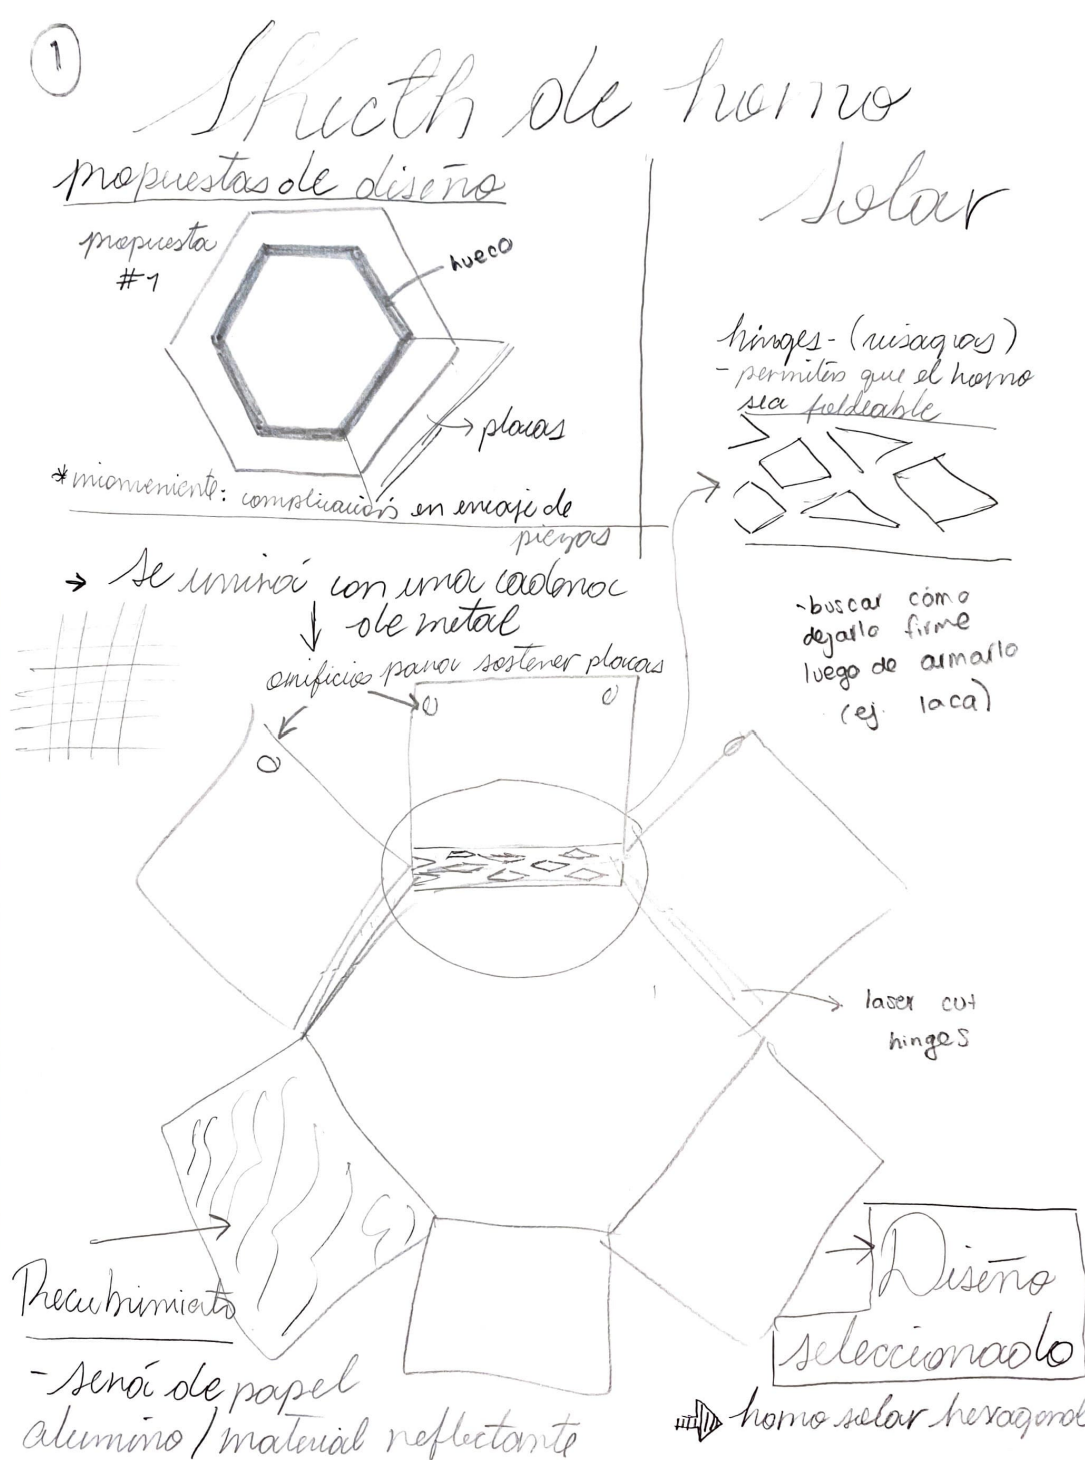 1
Skecth de horno
solar
propuestas de diseño
propuesta
#1
hueco
placas
*inconveniente: complicación en encaje de
piezas
hinges - (visagras)
- permiten que el horno
sea foldeable
- buscar cómo
dejarlo firme
luego de armarlo
(ej. laca)
→ Se unirá con una cadena
de metal
orificios para sostener placas
laser cut
hinges
Recubrimiento
- será de papel
alumino / material reflectante
Diseño
seleccionado
horno solar hexagonal